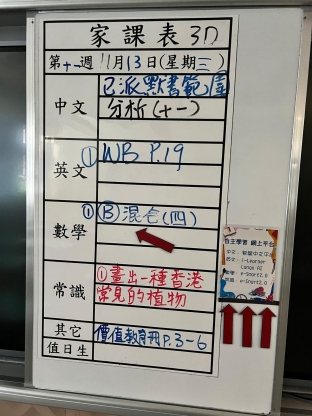 家課表 3D
第十一週 11月13日(星期三)
中文
已派默書範圍
分析(十一)
英文
① WB P.19
數學
① Ⓑ混合(四)
常識
①畫出一種香港
常見的植物
其它
價值教育冊P.3-6
值日生
自主學習 網上平台